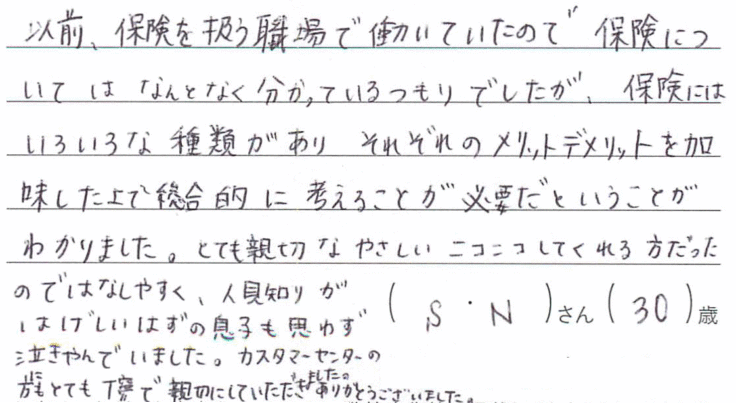 以前、保険を扱う職場で働いていたので 保険につ
いては なんとなく分かっているつもりでしたが、保険には
いろいろな 種類があり それぞれの メリットデメリットを加
味した上で総合的に 考えることが 必要だということが
わかりました。とても親切な やさしい ニコニコしてくれる 方だった
のではなしやすく、人見知りが
はげしいはずの息子も思わず
泣きやんでいました。カスタマーセンターの
方にもとても丁寧で親切にしていただきました。ありがとうございました。
( S・N )さん ( 30 )歳